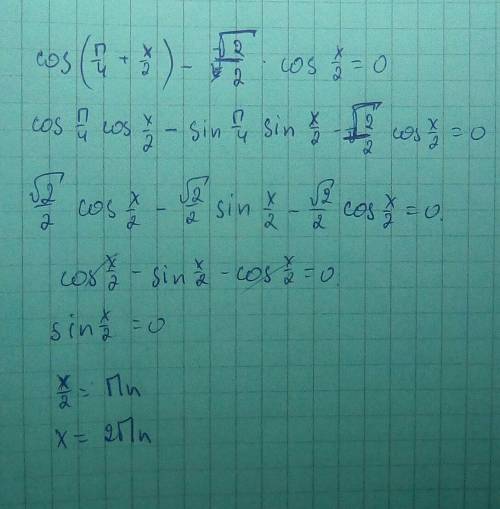 cos(π/4 + x/2) - √2/2 · cos x/2 = 0
cos π/4 cos x/2 - sin π/4 sin x/2 - √2/2 cos x/2 = 0
√2/2 cos x/2 - √2/2 sin x/2 - √2/2 cos x/2 = 0.
cos x/2 - sin x/2 - cos x/2 = 0.
sin x/2 = 0
x/2 = πn
x = 2πn